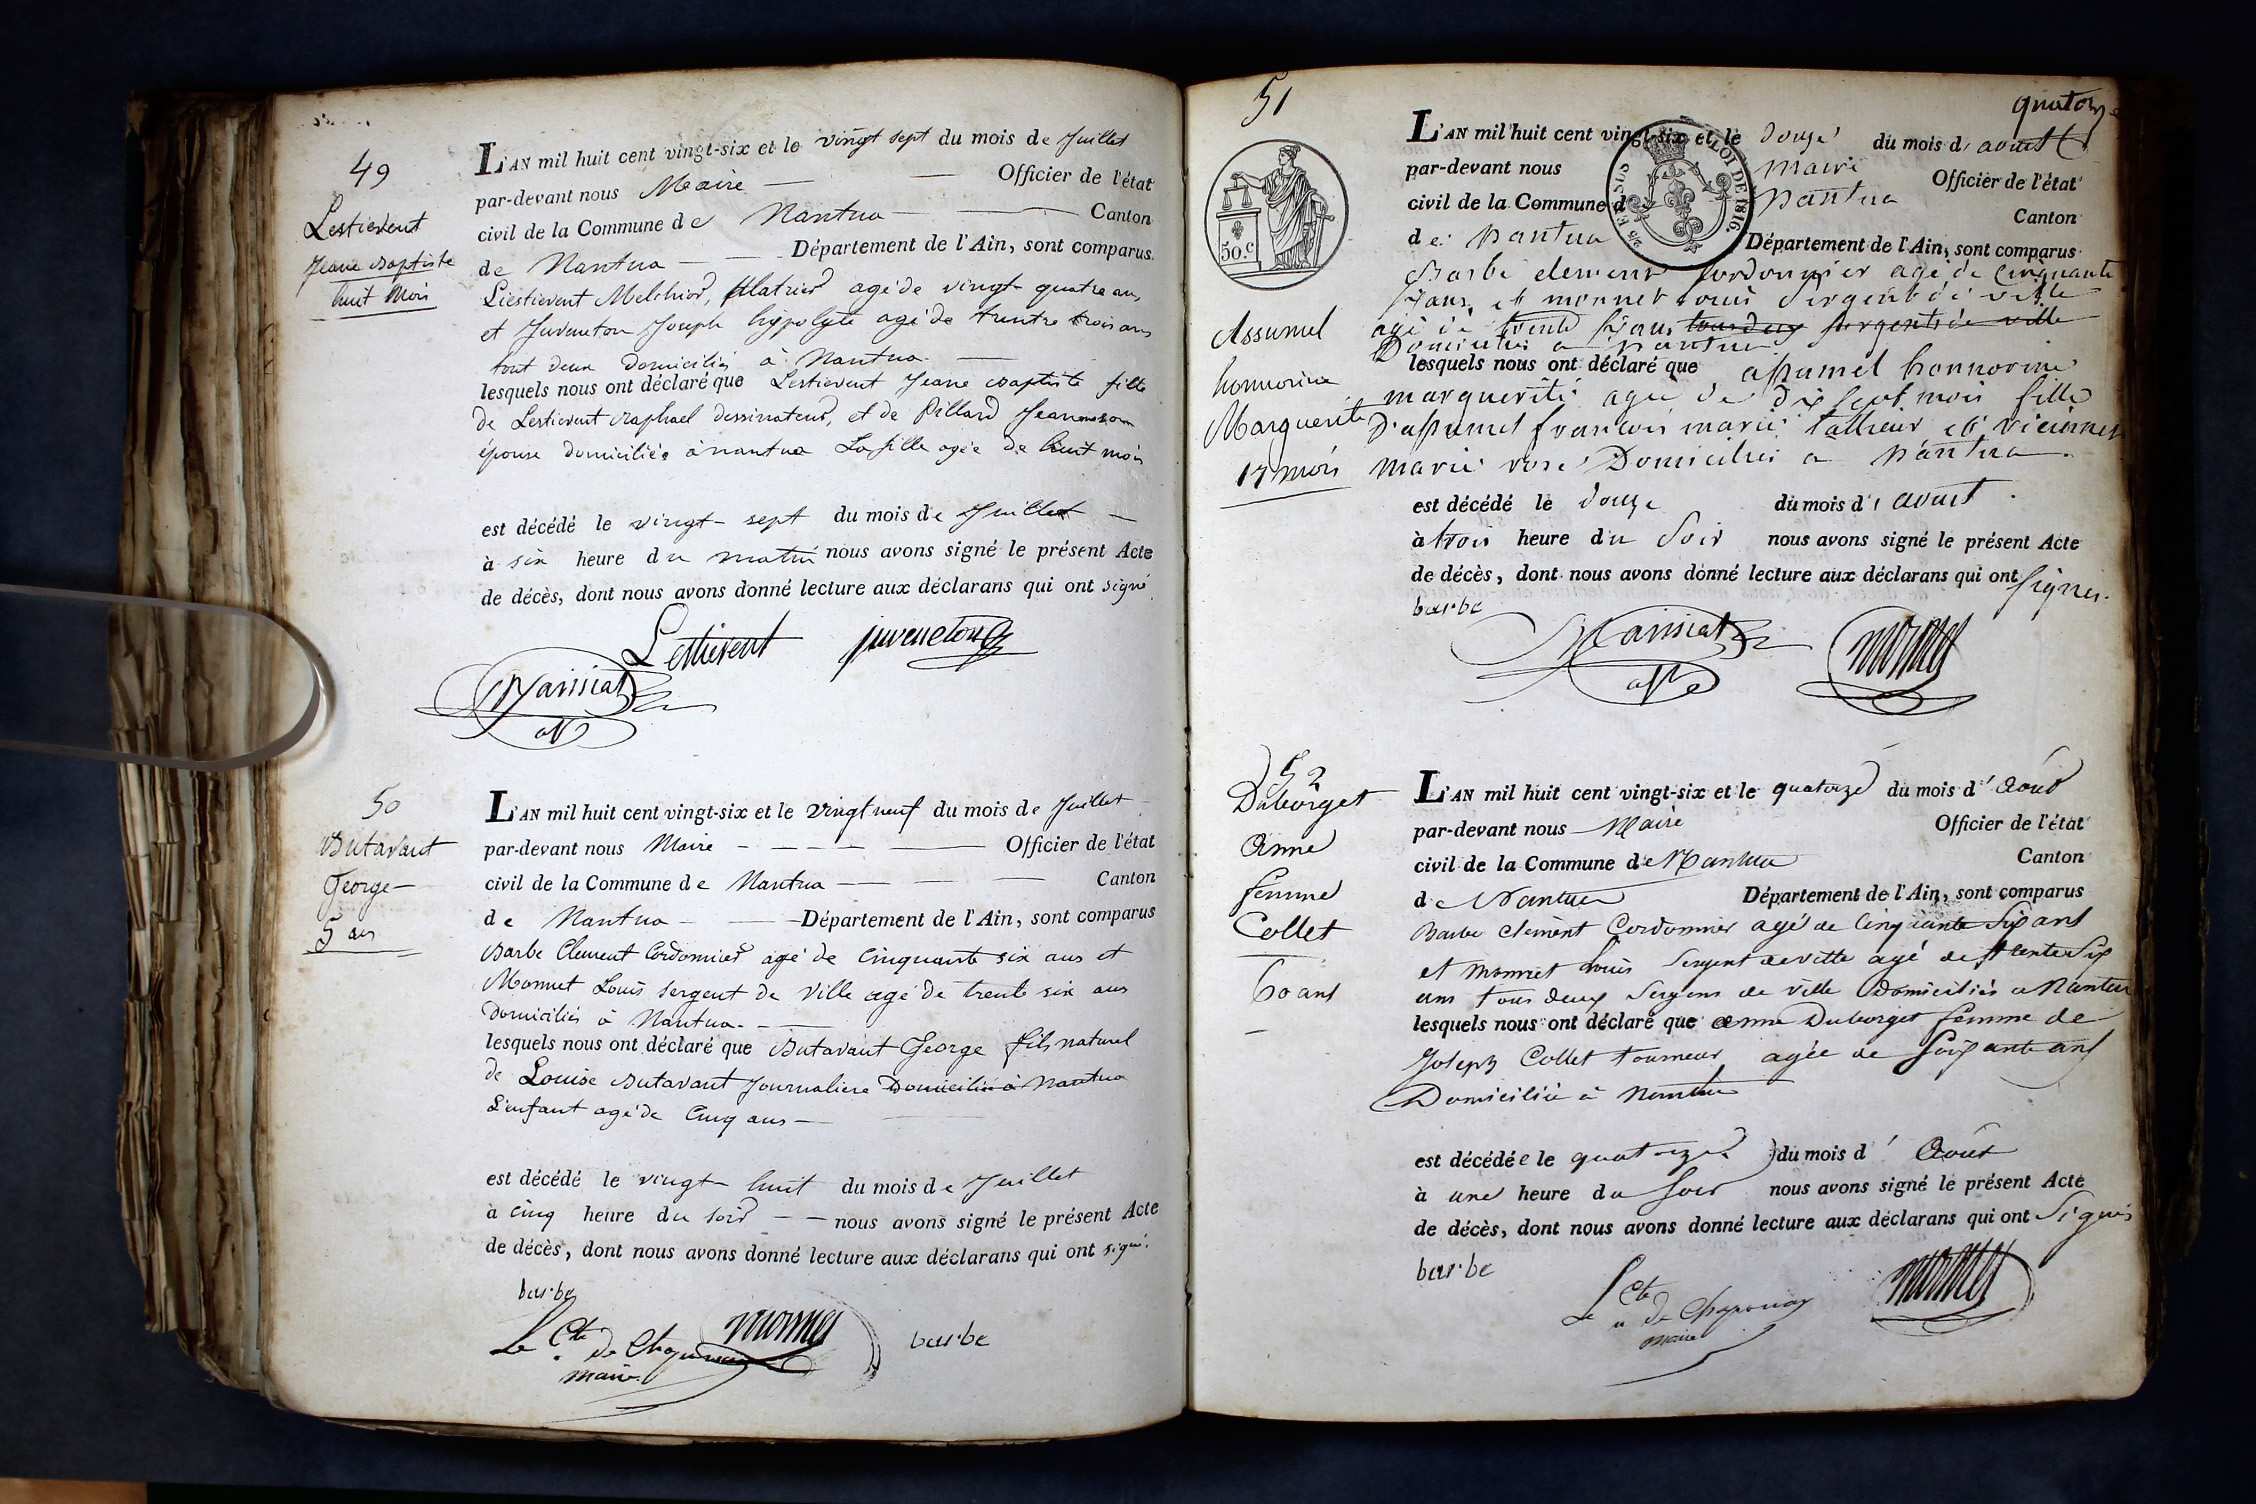 49
Lestievent
Jeane Baptiste
huit Mois
L'AN mil huit cent vingt-six et le vingt sept du mois de Juillet
par-devant nous Maire Officier de l'état
civil de la Commune de Nantua Canton
de Nantua Département de l'Ain, sont comparus
Liestievent Melchior, agé de vingt quatre ans,
et Juveneton Joseph hyppolyte agé de trentre trois ans
tout deux domiciliés à Nantua.
lesquels nous ont déclaré que Lestievent Jeane Baptiste fille
de Lestievent Raphael dessinateur, et de Pillard Jeanneson
épouse domiciliés à nantua La fille agée de huit mois
est décédé le vingt-sept du mois de Juillet
à six heure du matin nous avons signé le présent Acte
de décès, dont nous avons donné lecture aux déclarans qui ont signé.
Lestievent juveneton
50
Butavant
George
5 ans
L'AN mil huit cent vingt-six et le vingt neuf du mois de Juillet
par-devant nous Maire Officier de l'état
civil de la Commune de Nantua Canton
de Nantua Département de l'Ain, sont comparus
Barbe Clement Cordonnier agé de cinquante six ans et
Monnet Louis sergent de Ville agé de trente six ans
Domiciliés à Nantua.
lesquels nous ont déclaré que Butavant George fils naturel
de Louise Butavant Journaliere Domiciliée à Nantua
L'enfant agé de Cinq ans
est décédé le vingt huit du mois de Juillet
à Cinq heure du soir nous avons signé le présent Acte
de décès, dont nous avons donné lecture aux déclarans qui ont signé.
barbe
Le Cte de Chaponay monnet barbe
maire
51
quatorze
50.c
LOI DE 1816.
Assumel
honnorine
Marguerite
17 mois
L'AN mil huit cent vingt-six et le douze du mois d'aoust
par-devant nous maire Officier de l'état
civil de la Commune de Nantua Canton
de Nantua Département de l'Ain, sont comparus
Barbe clement cordonnier agé de cinquante
six ans et monnet louis sergent de ville
agé de trente six ans tous deux sergents de ville
Domicilies a nantua
lesquels nous ont déclaré que assumel honnorine
marguerite agee de dix sept mois fille
D'assumel francois marie et
marie rose Domicilies a Nantua.
est décédé le douze du mois d'aoust.
à trois heure du Soir nous avons signé le présent Acte
de décès, dont nous avons donné lecture aux déclarans qui ont signes.
barbe
monnet
52
Duborget
Anne
femme
Collet
60 ans
L'AN mil huit cent vingt-six et le quatorze du mois d'Août
par-devant nous Maire Officier de l'état
civil de la Commune de Nantua Canton
de Nantua Département de l'Ain, sont comparus
Barbe clément Cordonnier agé de Cinquante Six ans
et Monnet Louis Sergent de ville agé de trente Six
ans tous deux Sergens de ville Domiciliés a Nantua
lesquels nous ont déclaré que anne Duborget femme de
Joseph Collet tourneur agée de Soixante ans
Domiciliée à Nantua
est décédée le quatorze du mois d'Août
à une heure du Soir nous avons signé le présent Acte
de décès, dont nous avons donné lecture aux déclarans qui ont Signés
barbe
Le Cte de Chaponay monnet
maire